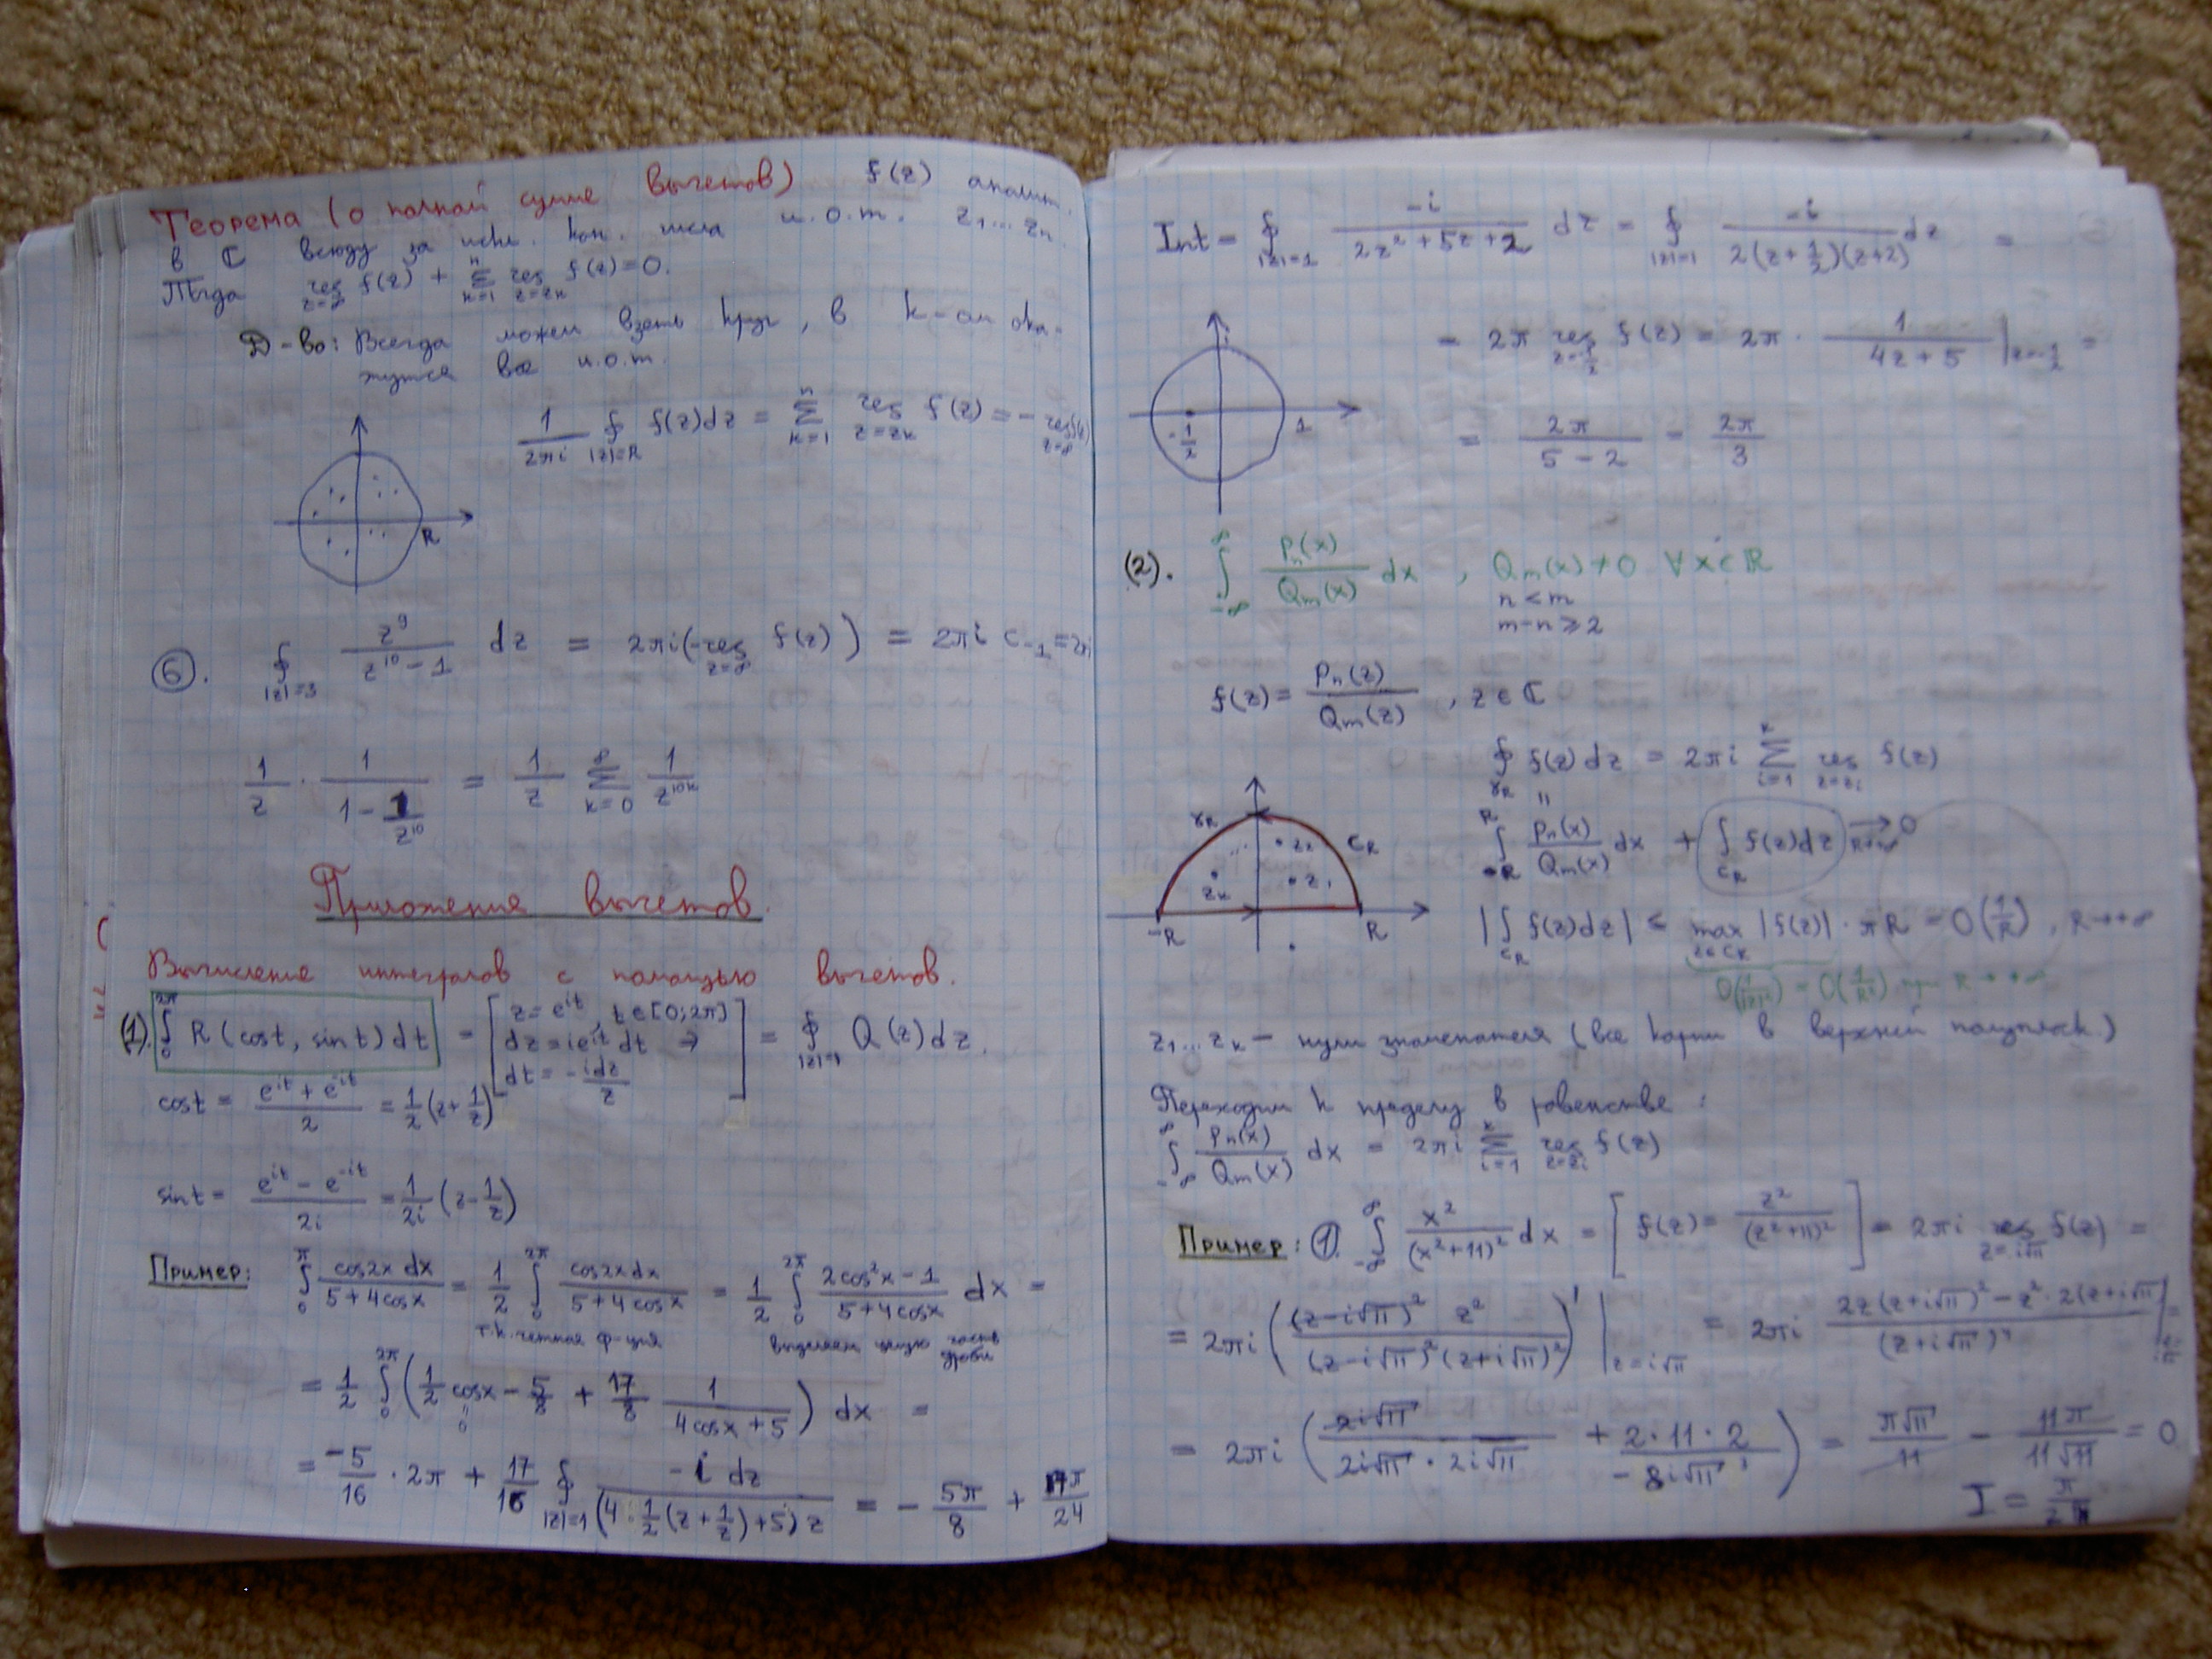 Теорема (о полной сумме вычетов) f(z) аналит.
в ℂ всюду за искл. кон. числа и.о.т. z₁...zₙ.
Тогда res_{z=∞} f(z) + Σ_{k=1}^{n} res_{z=z_k} f(z) = 0.
Д-во: Всегда можем взять круг, в к-ом ока-
жутся все и.о.т.
1/(2πi) ∮_{|z|=R} f(z)dz = Σ_{k=1}^{n} res_{z=z_k} f(z) = - res_{z=∞} f(z)
R
⑥. ∮_{|z|=3} z⁹/(z¹⁰-1) dz = 2πi(-res_{z=∞} f(z)) = 2πi c₋₁ = 2πi
1/z · 1/(1 - 1/z¹⁰) = 1/z Σ_{k=0}^{∞} 1/z^{10k}
Приложение вычетов.
Вычисление интегралов с помощью вычетов.
(1). ∫_0^{2π} R(cost, sint)dt = [z = e^{it}, t∈[0;2π] dz = ie^{it}dt ⇒ dt = -idz/z] = ∮_{|z|=1} Q(z)dz.
cost = (e^{it} + e^{-it})/2 = 1/2 (z + 1/z)
sint = (e^{it} - e^{-it})/2i = 1/2i (z - 1/z)
Пример: ∫_0^π cos2x dx/(5+4cosx) = 1/2 ∫_0^{2π} cos2x dx/(5+4cosx) = 1/2 ∫_0^{2π} (2cos²x - 1)/(5+4cosx) dx =
т.к. четная ф-ция выделяем целую часть дроби
= 1/2 ∫_0^{2π} (1/2 cosx - 5/8 + 17/8 1/(4cosx+5)) dx =
" 0
= -5/16 · 2π + 17/16 ∮_{|z|=1} -i dz/((4·1/2(z+1/z)+5)z) = - 5π/8 + 17π/24
Int = ∮_{|z|=1} -i/(2z²+5z+2) dz = ∮_{|z|=1} -i/(2(z+1/2)(z+2)) dz =
= 2π res_{z=-1/2} f(z) = 2π · 1/(4z+5) |_{z=-1/2} =
-1/2 1
= 2π/(5-2) = 2π/3
(2). ∫_{-∞}^{∞} Pₙ(x)/Qₘ(x) dx, Qₘ(x)≠0 ∀x∈ℝ
n<m
m-n⩾2
f(z) = Pₙ(z)/Qₘ(z), z∈ℂ
∮_{γ_R} f(z)dz = 2πi Σ_{i=1}^{k} res_{z=z_i} f(z)
"
∫_{-R}^{R} Pₙ(x)/Qₘ(x) dx + ∫_{C_R} f(z)dz →_{R→∞} 0
γ_R ... z₂ C_R
z_k z₁
-R R
|∫_{C_R} f(z)dz| ≤ max_{z∈C_R} |f(z)| · πR = O(1/R), R→+∞
O(1/|z|²) = O(1/R²) при R→+∞
z₁...z_k — нули знаменателя (все корни в верхней полуплоск.)
Переходим к пределу в равенстве:
∫_{-∞}^{∞} Pₙ(x)/Qₘ(x) dx = 2πi Σ_{i=1}^{k} res_{z=z_i} f(z)
Пример: ①. ∫_{-∞}^{∞} x²/(x²+11)² dx = [f(z) = z²/(z²+11)²] = 2πi res_{z=i√11} f(z) =
= 2πi ((z-i√11)² z²/((z-i√11)²(z+i√11)²))' |_{z=i√11} = 2πi (2z(z+i√11)² - z²·2(z+i√11))/(z+i√11)⁴ |_{z=i√11} =
= 2πi (2i√11/(2i√11·2i√11) + 2·11·2/(-8i√11³)) = π√11/11 - 11π/(11√11) = 0